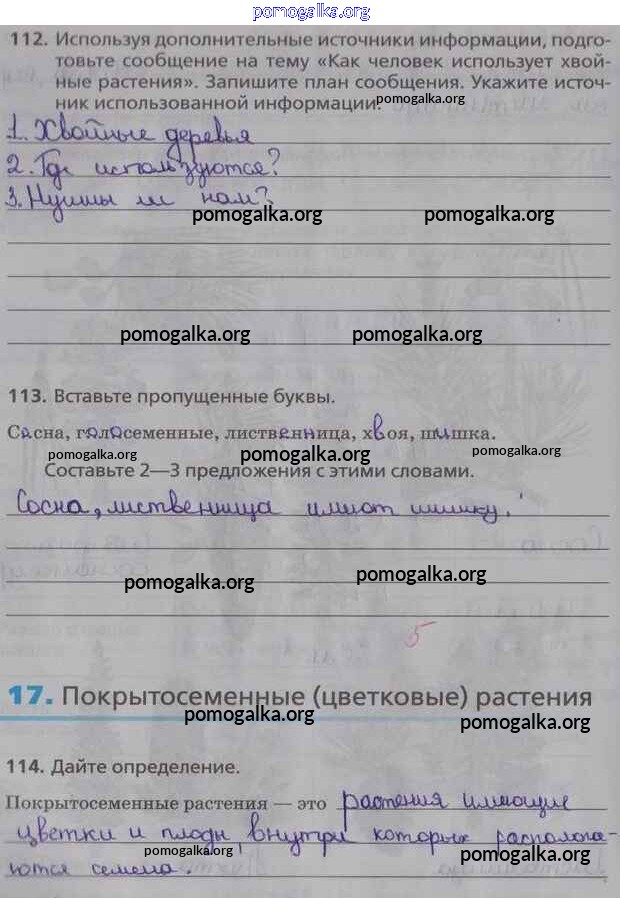 pomogalka.org
112. Используя дополнительные источники информации, подго-
товьте сообщение на тему «Как человек использует хвой-
ные растения». Запишите план сообщения. Укажите источ-
ник использованной информации.
pomogalka.org
1. Хвойные деревья
2. Где используются?
3. Нужны ли нам?
pomogalka.org pomogalka.org
pomogalka.org pomogalka.org
113. Вставьте пропущенные буквы.
Сосна, голосеменные, лиственница, хвоя, шишка.
pomogalka.org pomogalka.org
Составьте 2—3 предложения с этими словами.
Сосна, лиственница имеют шишку.
pomogalka.org pomogalka.org
5
17. Покрытосеменные (цветковые) растения
pomogalka.org pomogalka.org
114. Дайте определение.
Покрытосеменные растения — это растения имеющие
цветки и плоды, внутри которых распола-
pomogalka.org pomogalka.org
ются семена.